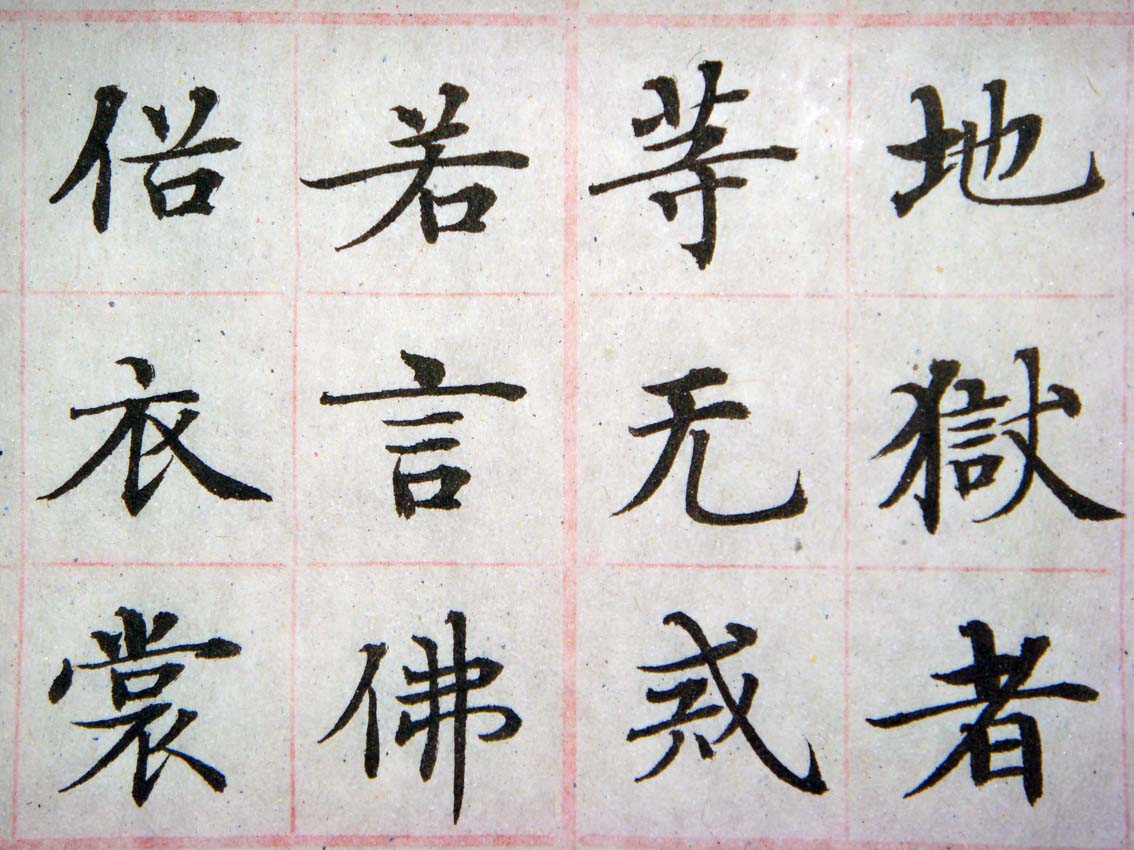 地獄者
等无戒
若言佛
俗衣裳